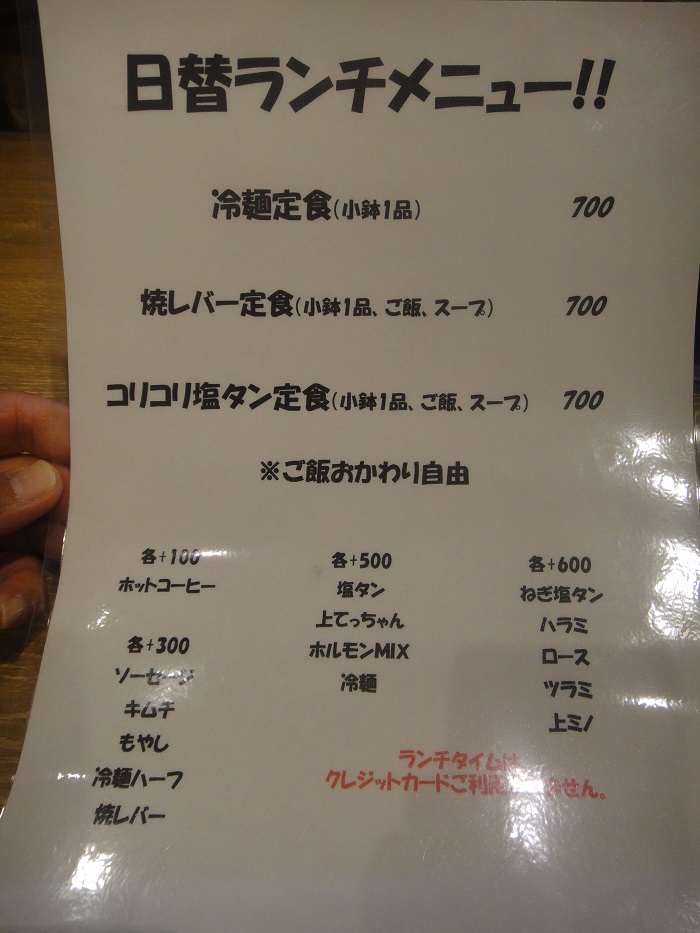 日替ランチメニュー!!
冷麺定食(小鉢1品) 700
焼レバー定食(小鉢1品、ご飯、スープ) 700
コリコリ塩タン定食(小鉢1品、ご飯、スープ) 700
※ご飯おかわり自由
各+100
ホットコーヒー
各+300
ソーセージ
キムチ
もやし
冷麺ハーフ
焼レバー
各+500
塩タン
上てっちゃん
ホルモンMIX
冷麺
各+600
ねぎ塩タン
ハラミ
ロース
ツラミ
上ミノ
ランチタイムは
クレジットカードご利用 ません。